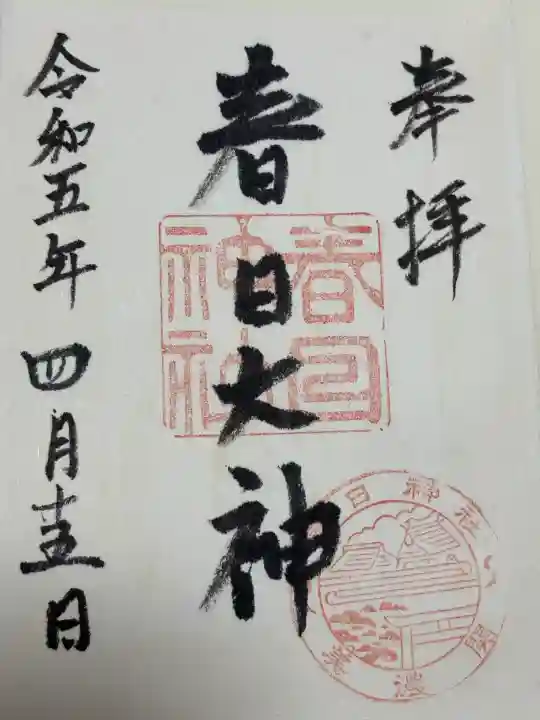 奉拝
春日大神
春日神社
日神社
関
令和五年四月十五日